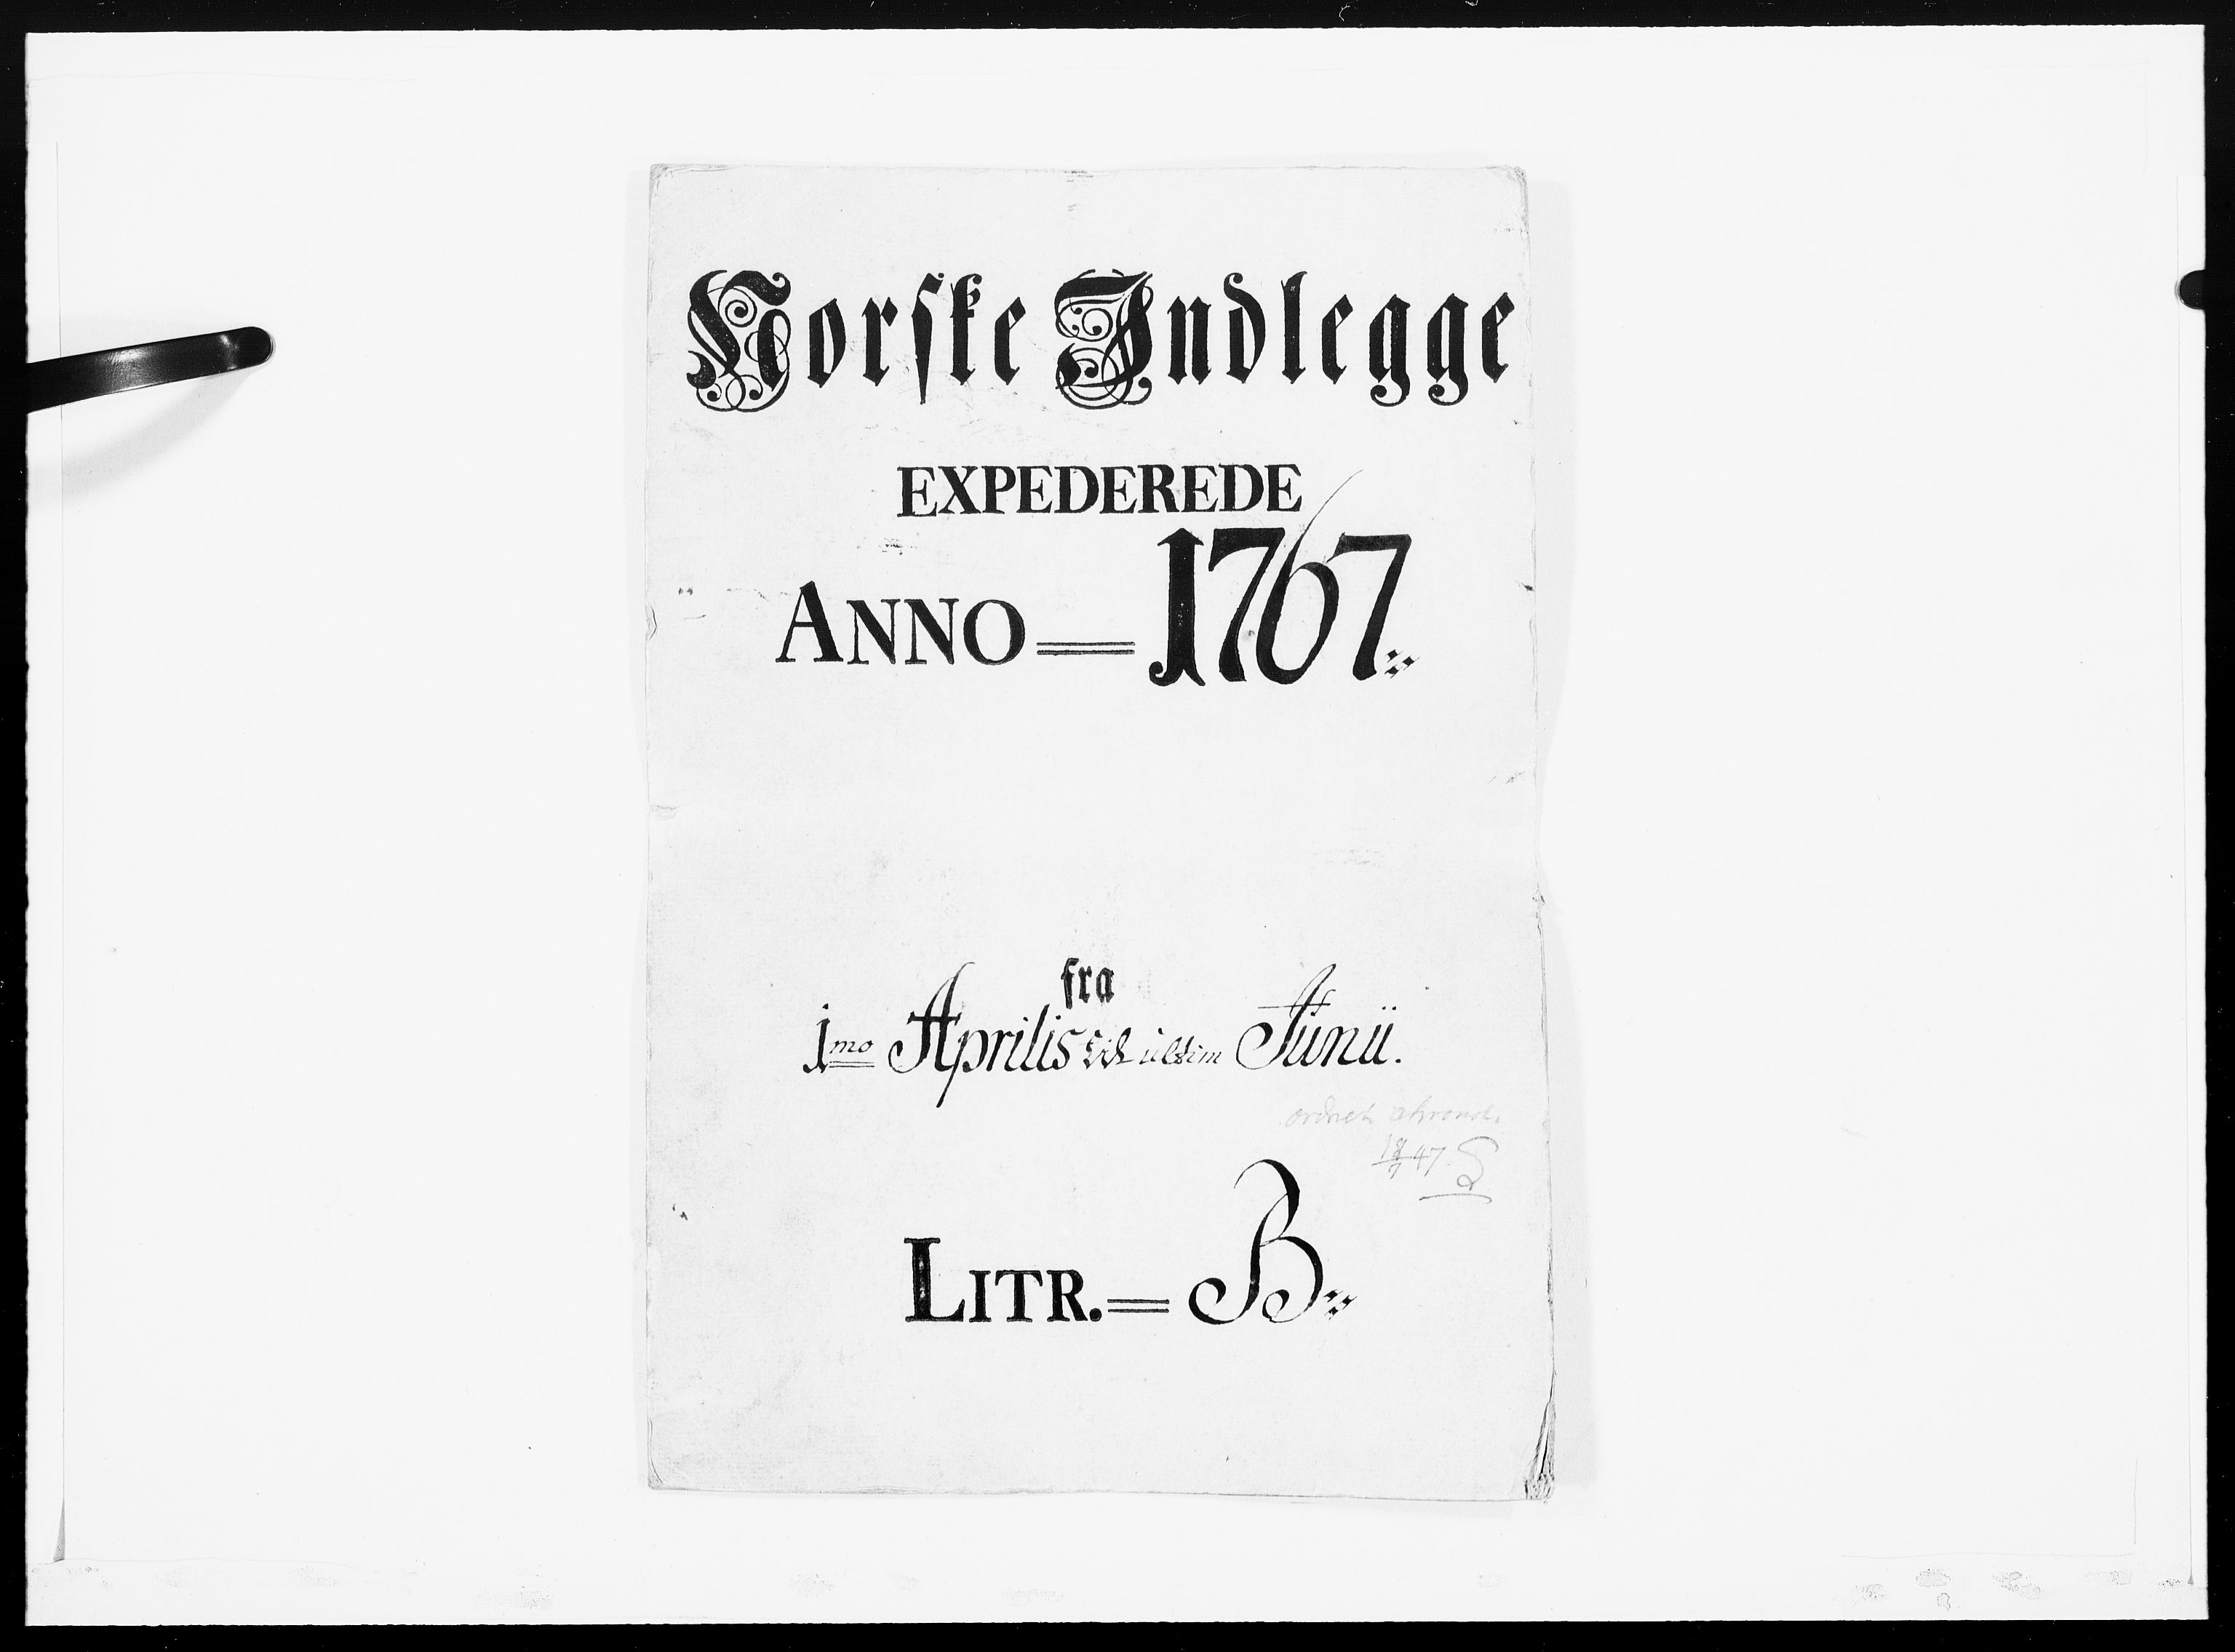 Norske Indlegge
EXPEDEREDE
ANNO = 1767.
fra
1mo Aprilis til ultim Junii.
ordnet
47
LITR. = B